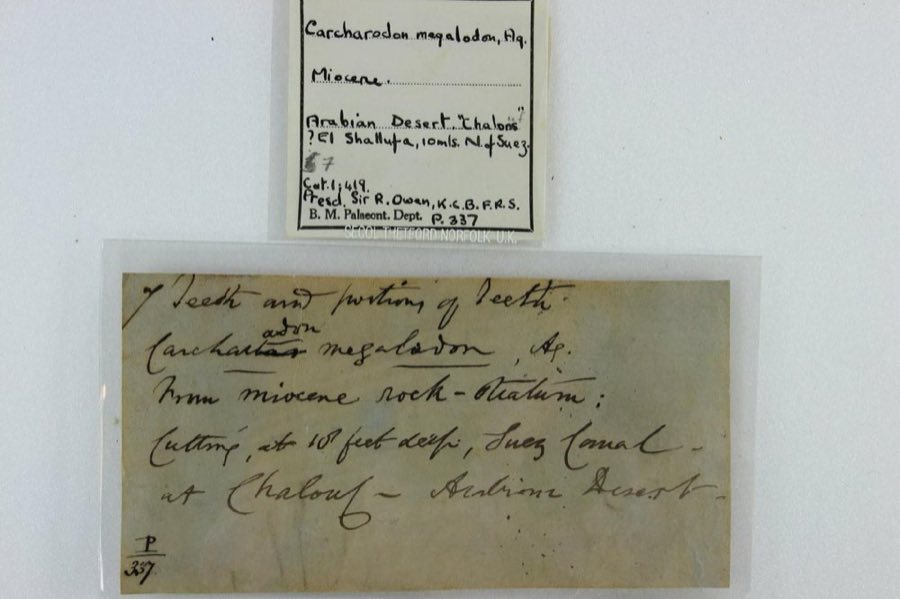 Carcharodon megalodon, Ag.
Miocene.
Arabian Desert. "Chalons"
? El Shallufa, 10mls. N. of Suez.
67
Cat. 1; 419.
Presd. Sir R. Owen, K.C.B. F.R.S.
B. M. Palaeont. Dept. P. 337
SECOL THETFORD NORFOLK U.K.
7 Teeth and portions of Teeth.
adon
Carcharias megalodon, Ag.
From miocene rock-stratum:
Cutting, at 18 feet deep, Suez Canal -
at Chalouf - Arabian Desert -
P
337